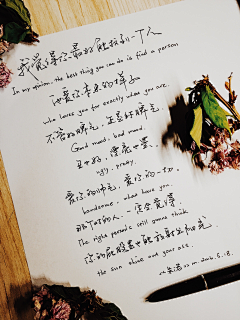 我觉得你最好能找到一个人
In my opinion, the best thing you can do is find a person
他爱你本来的样子
who loves you for exactly what you are.
不管好脾气,坏脾气
Good mood, bad mood,
丑也好,漂亮也罢,
ugly, pretty,
爱你的帅气,爱你的一切,
handsome, what have you,
那个对的人,
The right person's still gonna think
你的屁股里也能放射出阳光
the sun shine out your ass.
2016.5.18.